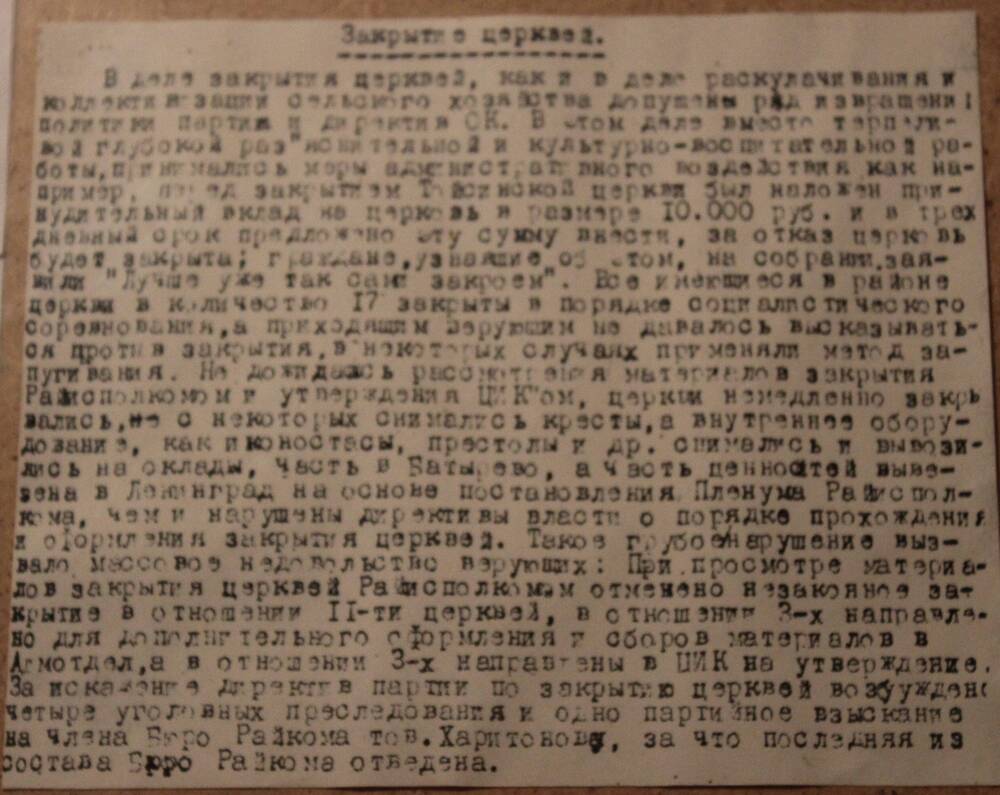 Закрытие церквей.
В деле закрытия церквей, как и в деле раскулачивания и
коллективизации сельского хозяйства допущены ряд извращений
политики партии и директив ОК. В этом деле вместо терпели-
вой глубокой раз"яснительной и культурно-воспитательной ра-
боты,принимались меры административного воздействия как на-
пример, перед закрытием Тойсинской церкви был наложен при-
нудительный вклад на церковь в размере 10.000 руб. и в трех
дневный срок предложено эту сумму внести, за отказ церковь
будет закрыта; граждане,узнавшие об этом, на собрании,зая-
вили "Лучше уже так сами закроем". Все имеющиеся в районе
церкви в количество 17 закрыты в порядке социалистического
соревнования,а приходящим верующим не давалось высказывать-
ся против закрытия,в некоторых случаях применяли метод за-
пугивания. Не дожидаясь рассмотрения материалов закрытия
Райисполкомом и утверждения ЦИК"ом, церкви немедленно закры
вались, с некоторых снимались кресты,а внутреннее обору-
дование, как иконостасы, престолы и др. снимались и вывози-
лись на склады, часть в Батырево, а часть ценностей выве-
зена в Ленинград на основе постановления Пленума Райиспол-
кома, чем и нарушены директивы власти о порядке прохождения
и оформления закрытия церквей. Такое грубое нарушение выз-
вало массовое недовольство верующих: При просмотре материа-
лов закрытия церквей Райисполкомом отменено незаконное за-
крытие в отношении II-ти церквей, в отношении 3-х направле-
но для дополнительного оформления и сборов материалов в
Адмотдел,а в отношении 3-х направлены в ЦИК на утверждение.
За искажение директив партии по закрытию церквей возбуждено
четыре уголовных преследования и одно партийное взыскание
на члена Бюро Райкома тов.Харитонову, за что последняя из
состава Бюро Райкома отведена.